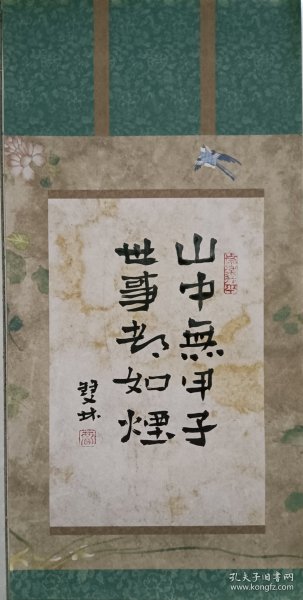 山中無甲子
世事都如煙
孔夫子旧书网
www.kongfz.com